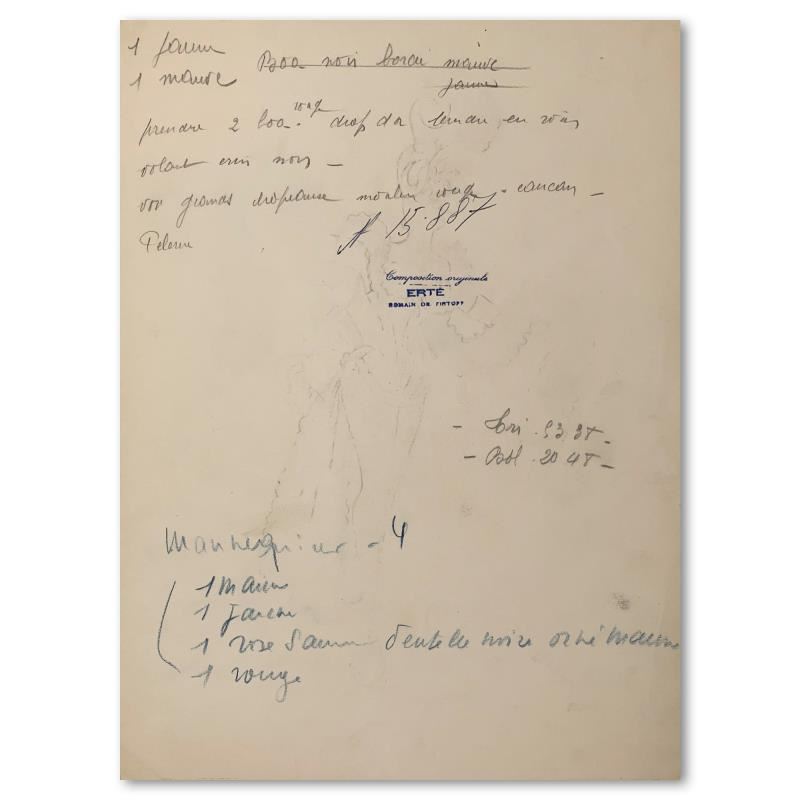 1 Jaune
1 mauve
Boa noir mauve
jaune
prendre 2 boa rouge drap d'or en
volant noir —
grands drapeaux moulin rouge - cancan —
Pelerine
N 15.887
Composition originale
ERTÉ
ROMAIN DE TIRTOFF
- Tri. 53 37 -
- Bol. 20 48 -
Mannequins - 4
1 Mauve
1 Jaune
1 rose Saumon dentelle noire orné Mauve
1 rouge